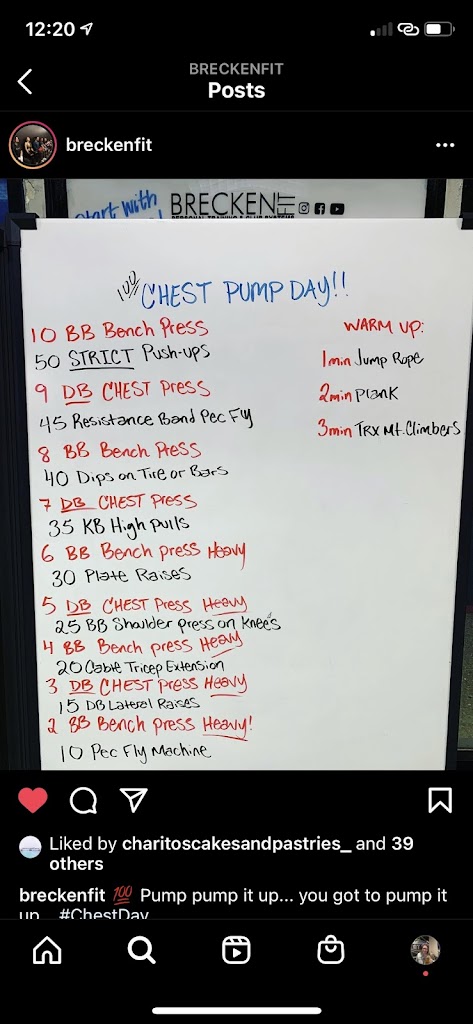 12:20
BRECKENFIT
Posts
breckenfit
Start with
BRECKEN FIT
PERSONAL TRAINING & CLUB SYSTEMS
100 CHEST PUMP DAY!!
10 BB Bench Press
50 STRICT Push-ups
9 DB CHEST Press
45 Resistance Band Pec Fly
8 BB Bench Press
40 Dips on Tire or Bars
7 DB CHEST Press
35 KB High Pulls
6 BB Bench press Heavy
30 Plate Raises
5 DB CHEST Press Heavy
25 BB Shoulder press on Knees
4 BB Bench press Heavy
20 Cable Tricep Extension
3 DB CHEST press Heavy
15 DB Lateral Raises
2 BB Bench press Heavy!
10 Pec Fly Machine
WARM UP:
1min Jump Rope
2min Plank
3min TRX Mt. Climbers
Liked by charitoscakesandpastries_ and 39
others
breckenfit 💯 Pump pump it up... you got to pump it
up... #ChestDay